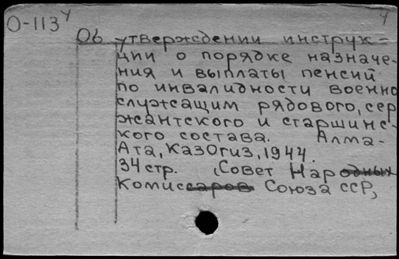 О-113у
Об утверждении инструк-
ции о порядке назначе-
ния и выплаты пенсий
по инвалидности военно
служащим рядового, сер
жантского и старшинс-
кого состава. Алма-
Ата, КазОгиз, 1944.
34 стр. (Совет Народных
Комиссаров Союза ССР,